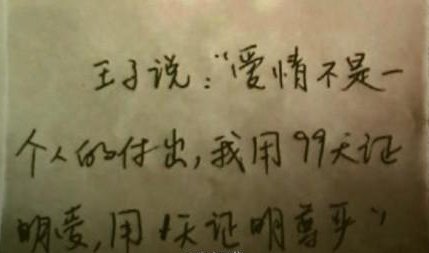 王子说："爱情不是一
个人的付出,我用99天证
明爱,用1天证明尊严"